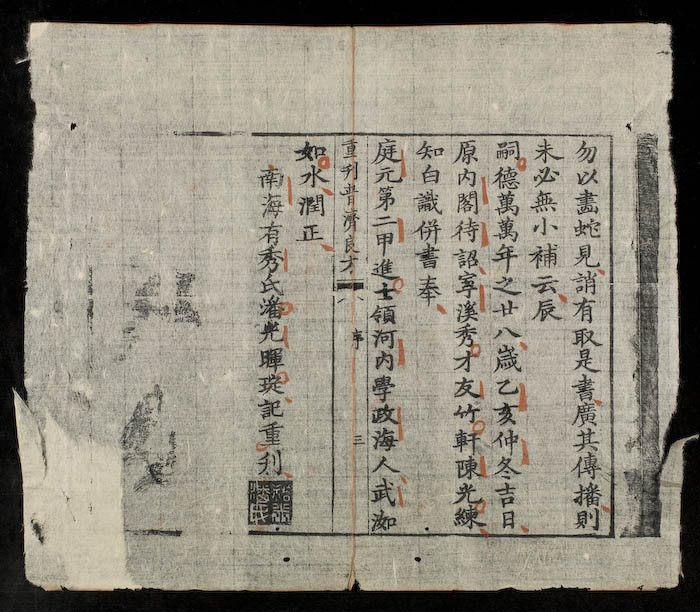 勿以畫蛇見誚有取是書廣其傳播則
未必無小補云辰
嗣德萬萬年之廿八歲乙亥仲冬吉日
原內閣待詔寧溪秀才友竹軒陳光練
知白識併書奉
庭元第二甲進士領河內學政海人武洳
重刊普濟良方 序 三
如水潤正
南海有秀氏潘光暉琔記重刊